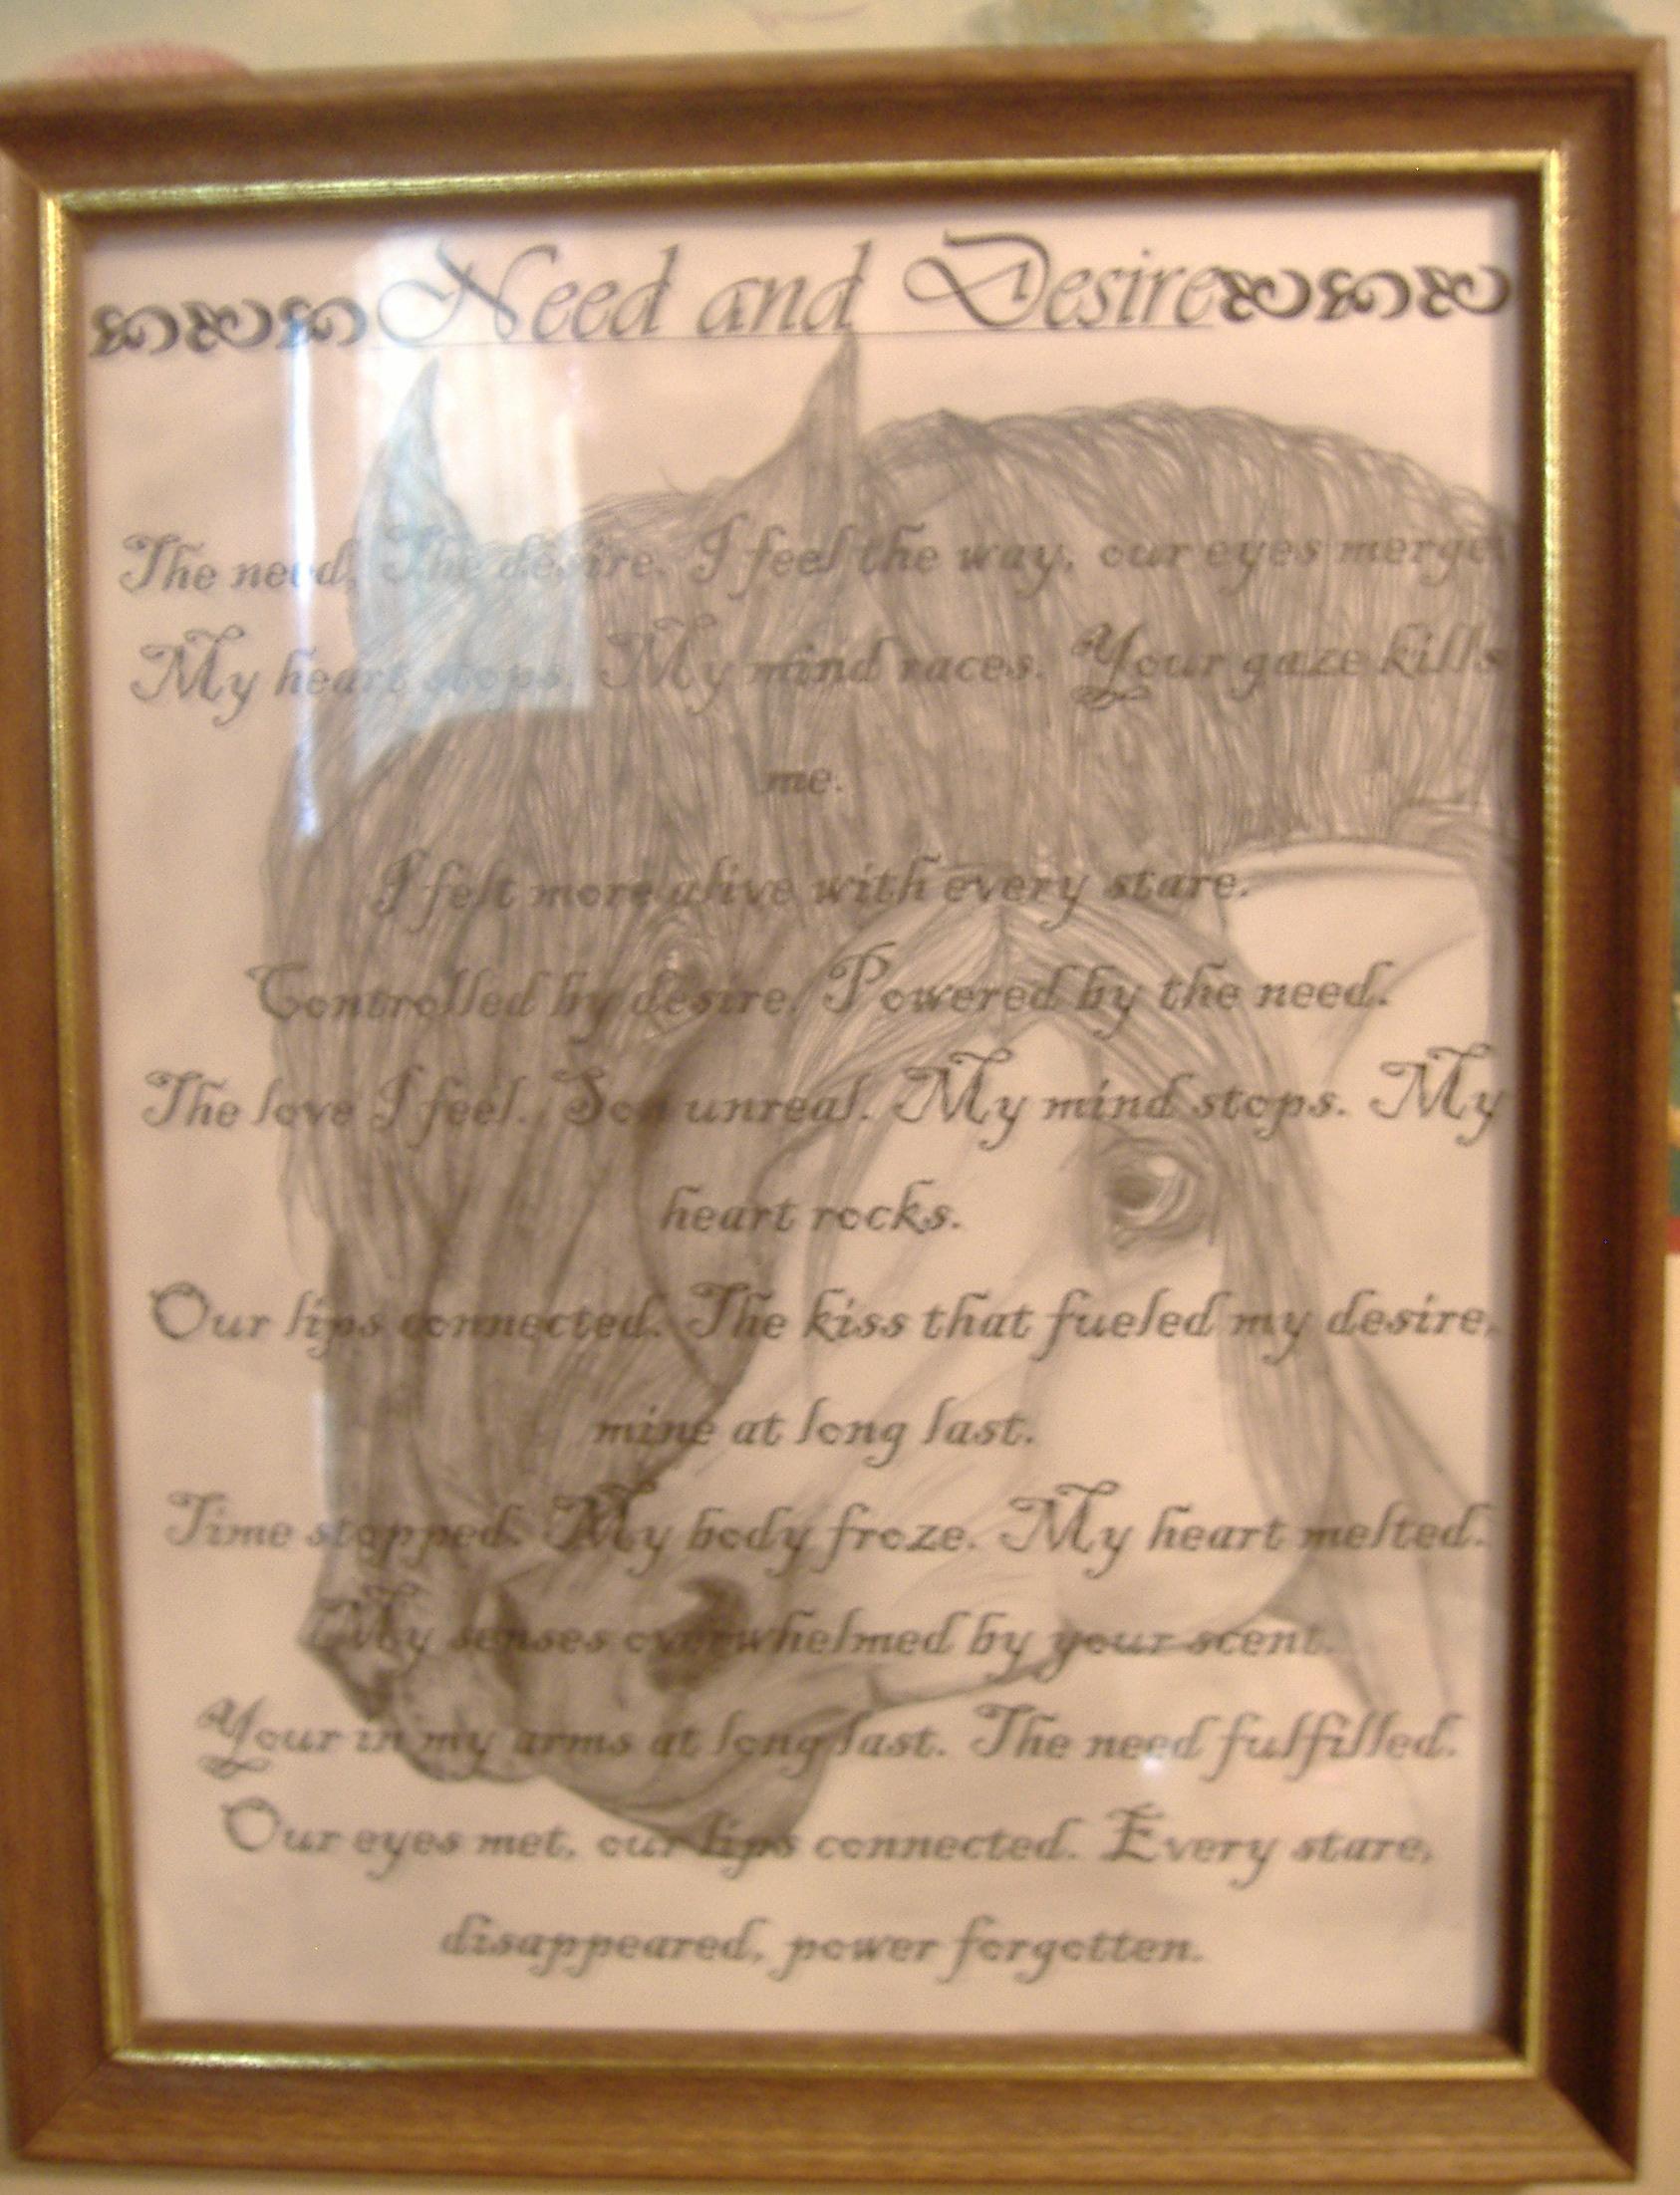 Need and Desire
The need. The desire. I feel the way, our eyes merge.
My heart stops. My mind races. Your gaze kills
me.
I felt more alive with every stare.
Controlled by desire. Powered by the need.
The love I feel. Soo unreal. My mind stops. My
heart rocks.
Our lips connected. The kiss that fueled my desire,
mine at long last.
Time stopped. My body froze. My heart melted.
My senses overwhelmed by your scent.
Your in my arms at long last. The need fulfilled.
Our eyes met, our lips connected. Every stare,
disappeared, power forgotten.